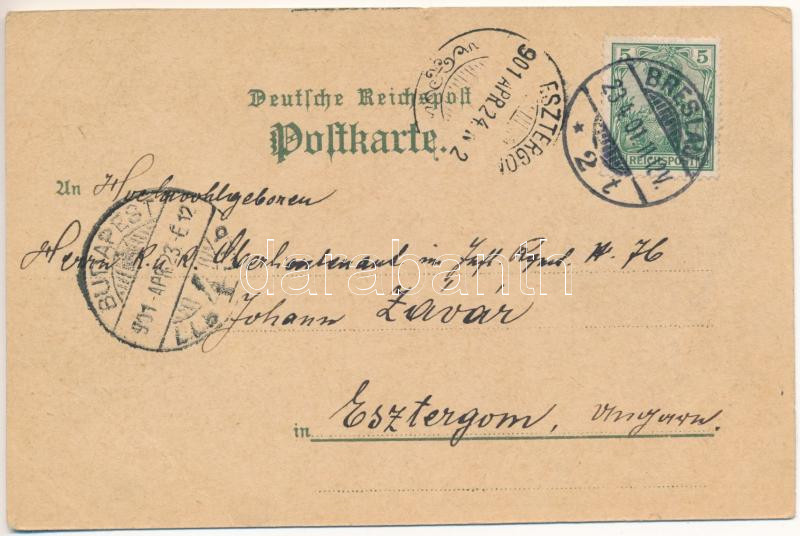 5 5
REICHSPOST
BRESLAU
23.4.01.11-12V.
* 2 t
ESZTERGOM
901 APR.24.N 2
Deutsche Reichspost
Postkarte.
An Hochwohlgeboren
Herrn K. u. K. Oberlieutenant in Inft. Rgmt. N. 76
Johann Závár
in Esztergom, Ungarn.
BUDAPEST
901 APR 23
darabanth